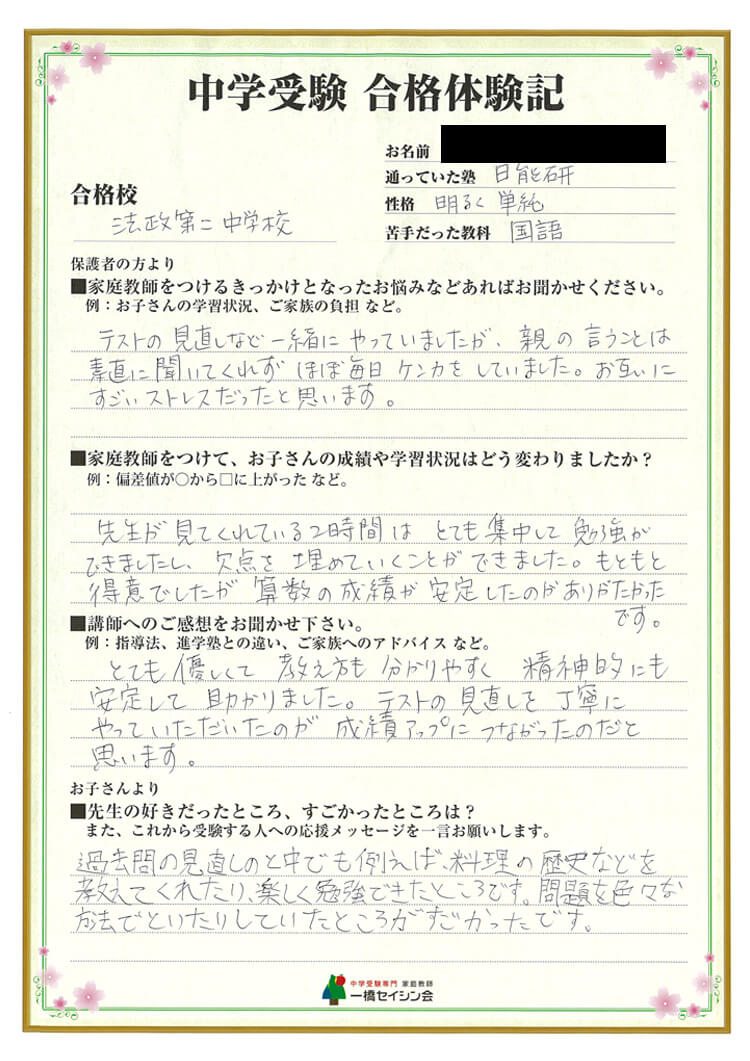 中学受験 合格体験記
お名前
通っていた塾 日能研
合格校
性格 明るく 単純
法政第二中学校
苦手だった教科 国語
保護者の方より
■家庭教師をつけるきっかけとなったお悩みなどあればお聞かせください。
例：お子さんの学習状況、ご家族の負担 など。
テストの見直しなど一緒にやっていましたが、親の言うことは
素直に聞いてくれず ほぼ毎日 ケンカをしていました。お互いに
すごいストレスだったと思います。
■家庭教師をつけて、お子さんの成績や学習状況はどう変わりましたか？
例：偏差値が○から□に上がった など。
先生が見てくれている2時間は とても集中して勉強が
できましたし、欠点を埋めていくことができました。もともと
得意でしたが 算数の成績が安定したのがありがたかった
です。
■講師へのご感想をお聞かせ下さい。
例：指導法、進学塾との違い、ご家族へのアドバイス など。
とても優しくて 教え方も分かりやすく 精神的にも
安定して 助かりました。テストの見直しを丁寧に
やっていただいたのが 成績アップにつながったのだと
思います。
お子さんより
■先生の好きだったところ、すごかったところは？
また、これから受験する人への応援メッセージを一言お願いします。
過去問の見直しのと中でも例えば、料理の歴史などを
教えてくれたり、楽しく勉強できたところです。問題を色々な
方法でといたりしていたところがすごかったです。
中学受験専門 家庭教師
一橋セイシン会